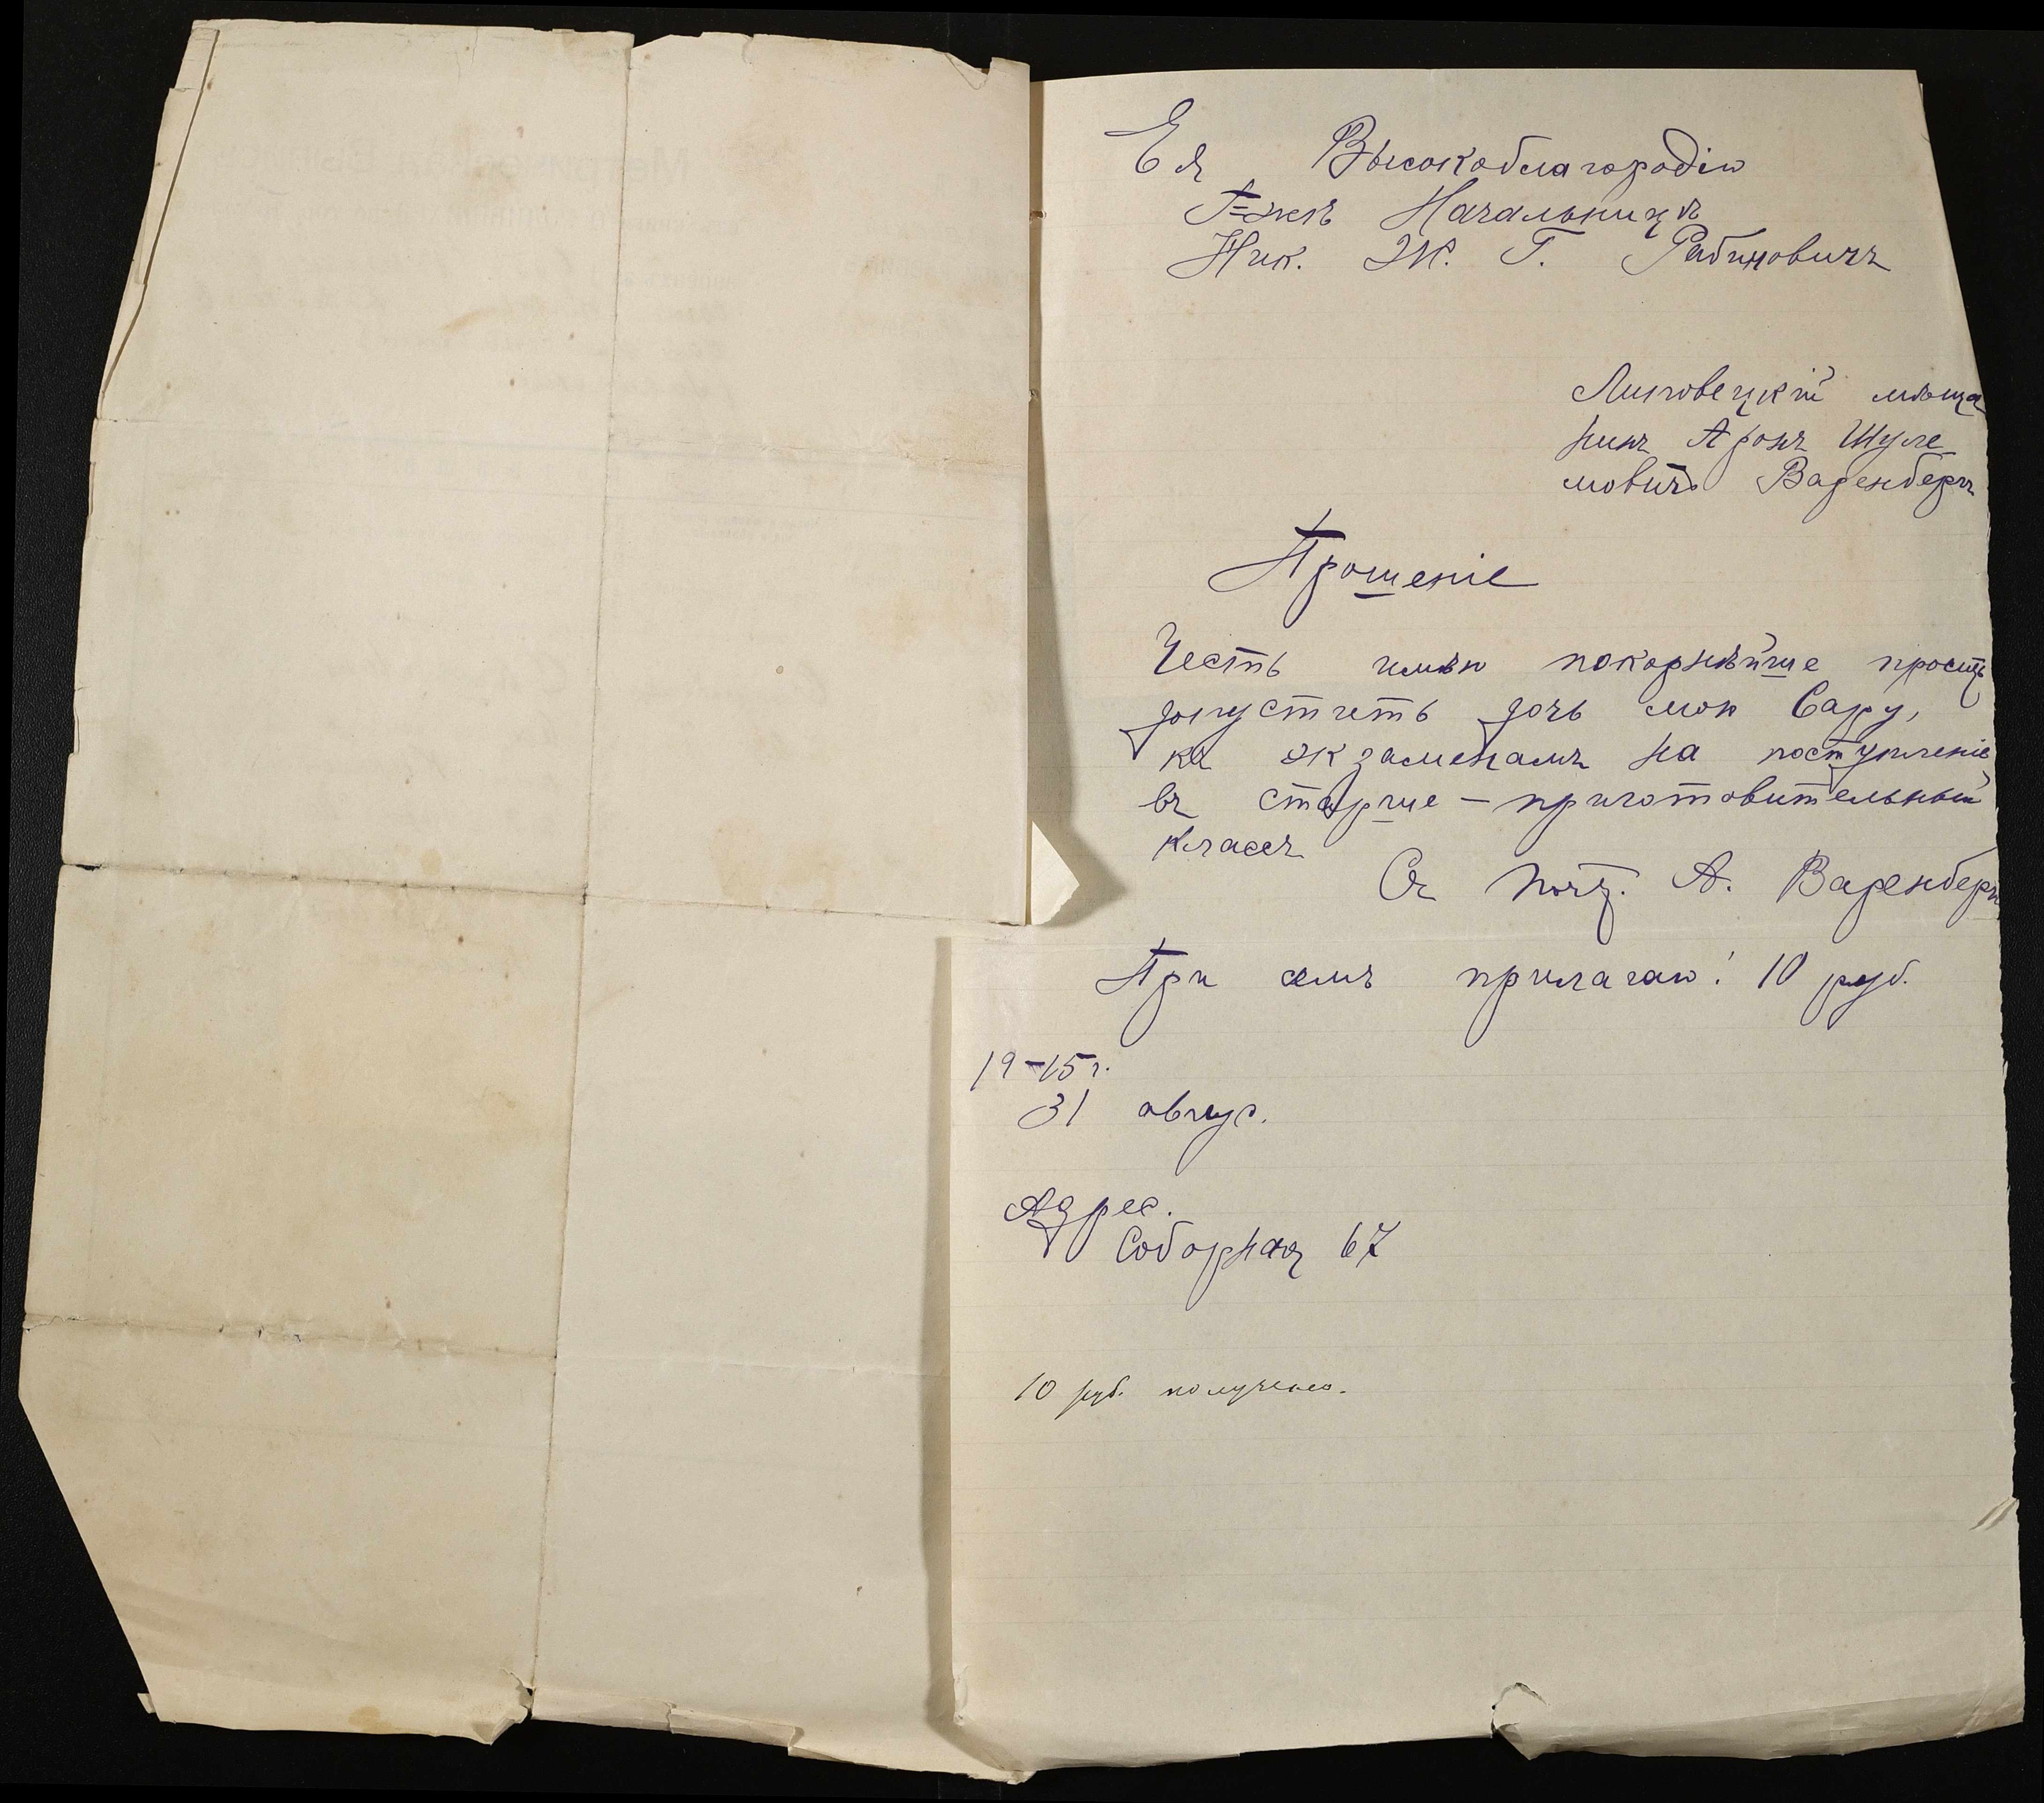 Ея Высокоблагородію
Г=жѣ Начальницѣ
Ник. Ж. Г. Рабиновичъ
Липовецкій мѣща
нинъ Аронъ Шуле
мовичъ Варенбергъ
Прошеніе
Честь имѣю покорнѣйше просить
допустить дочь мою Сару,
къ экзаменамъ на поступленіе
въ старше-приготовительный
классъ
Съ почт. А. Варенбергъ
При семъ прилагаю: 10 руб.
19-15 г.
31 авгус.
Адрес.
Соборная 67
10 руб. получено.